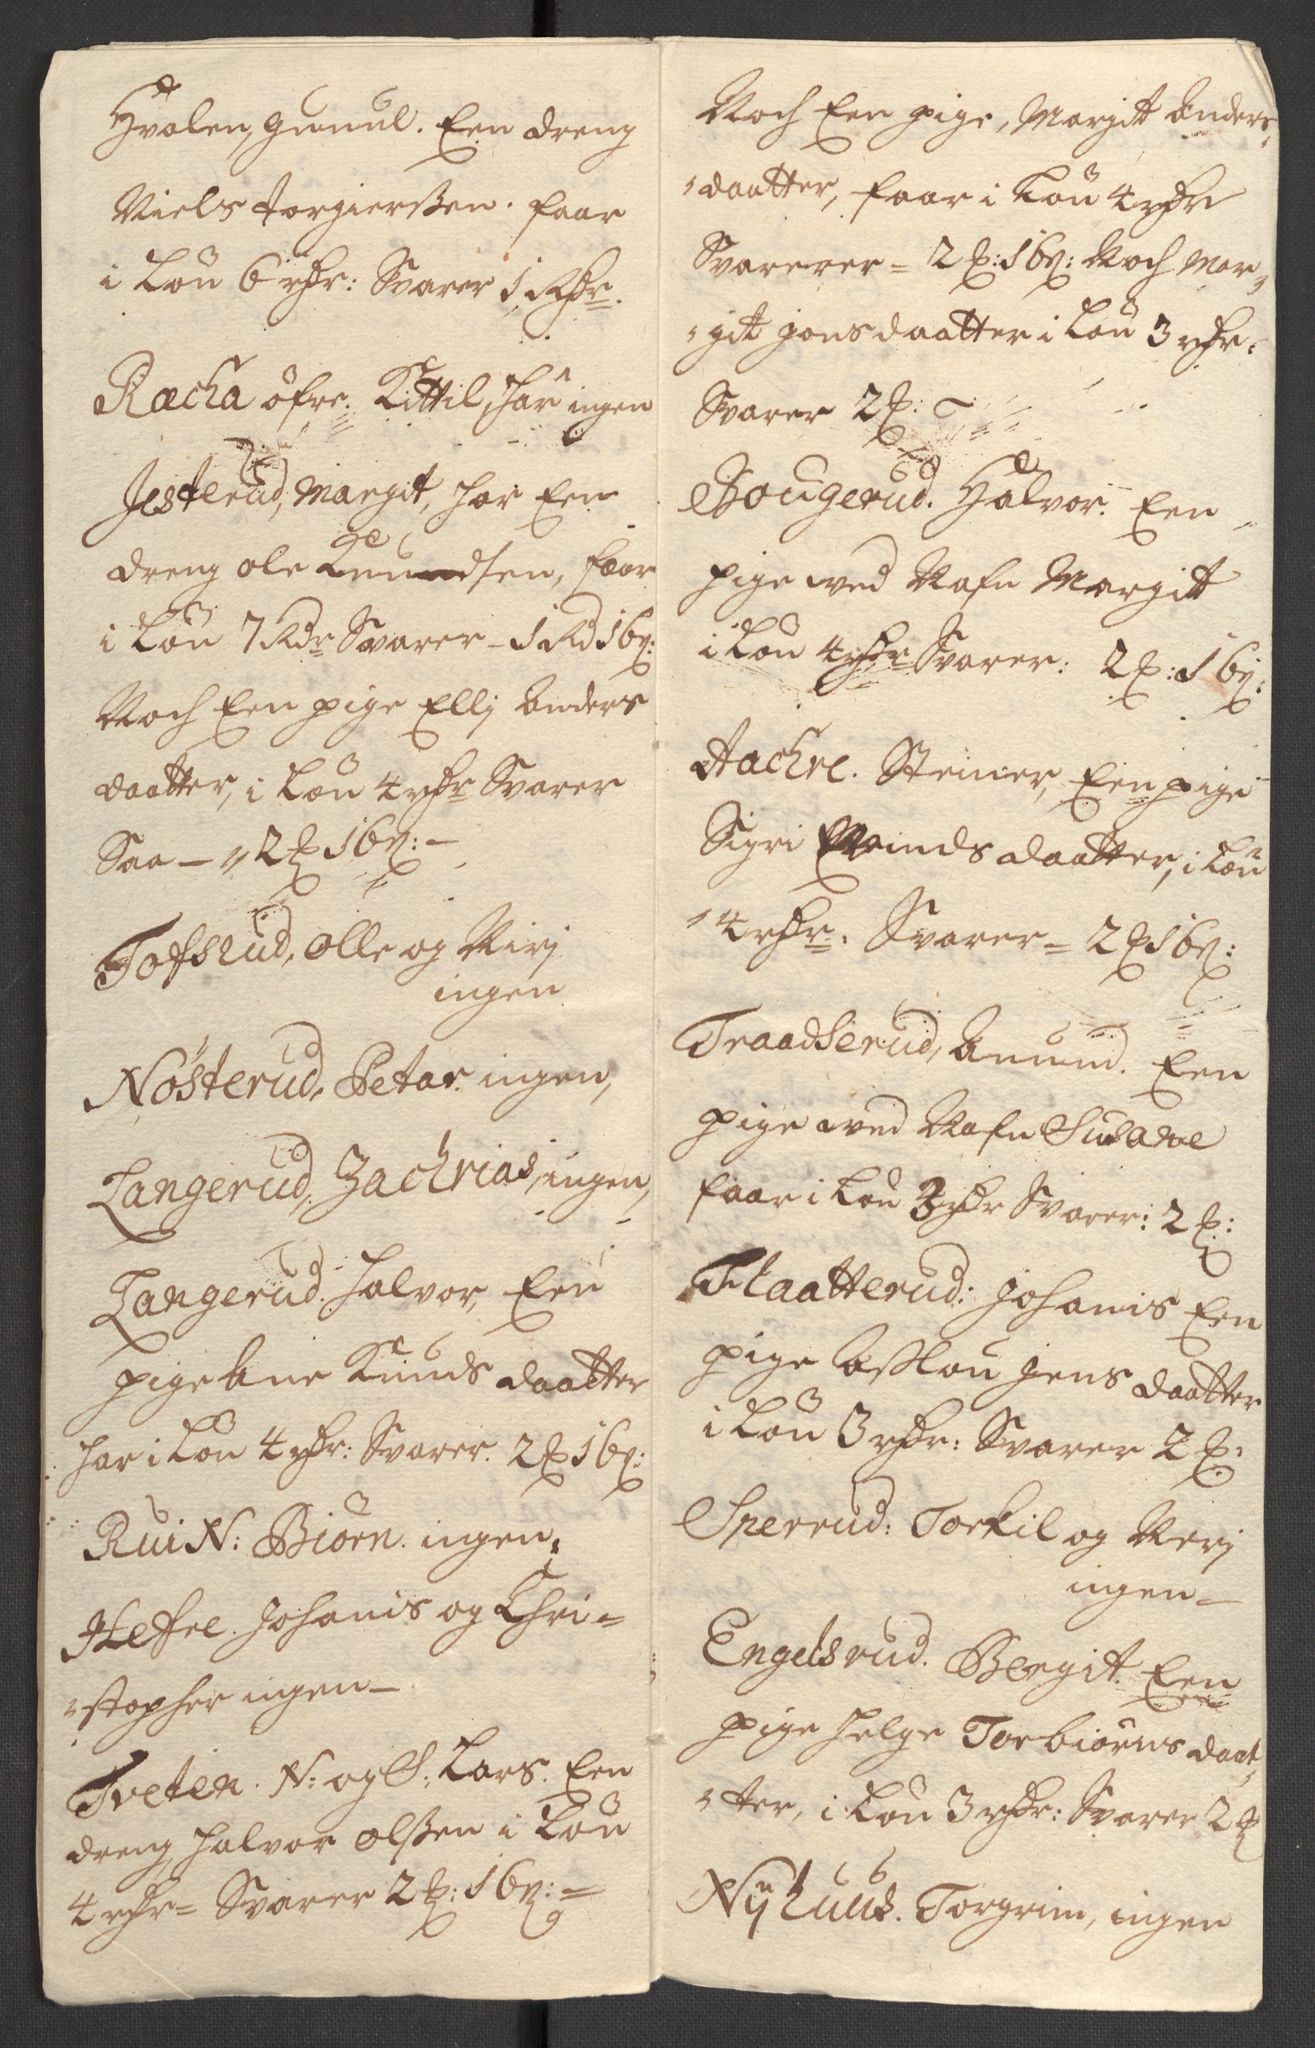 Hvalen, gunul. Een dreng
Niels torgierßen. faar
i Løn 6 rdr: Svarer 1 Rdr.
Racha öfre. Kittil, har ingen
Jesterud, Margit, har Een
dreng ole Knudsen, faar
i Løn 7 Rdr Svarer - 1 Rd 16ß:
Noch Een pige Ellj Anders
daatter, i Løn 4 rdr Svarer
Saa - 2 16ß: -
Tofsrud, olle og Kirj
ingen
Nösterud, Petar ingen,
Langerud, Zachrias, ingen,
Langerud. halvor, Een
pige Ane Knuds daatter
har i Løn 4 rdr: Svarer. 2 16ß:
Rui N: Biörn. ingen.
Hefre. Johanis og Chri=
stopher ingen -
Tveten. N: og S: Lars. Een
dreng, halvor olßen i Løn
4 rdr = Svarer 2 : 16ß: =
Noch Een pige, Margit Anders
daatter, faar i Løn 4 rdr
Svarerer = 2 : 16ß: Noch Mar=
git jons daatter i Løn 3 rdr.
Svarer 2 :
Bougerud. Halvor. Een
pige wed Nafn Margit
i Løn 4 rdr Svarer: 2 : 16ß:
Aachre. Steiner, Een pige
Sigri daatter, i Løn
4 rdr. Svarer = 2 16ß:
Traadserud, Anund. Een
pige wed Nafn Susane
faar i Løn 3 rdr Svarer: 2 :
Flaatterud: Johanis Een
pige Aßlou jens daatter
i Løn 3 rdr: Svarer 2 :
Sperrud: Torkil og Kirj
ingen -
Engelsrud. Bergit. Een
pige helge Torbiörns daat
ter, i Løn 3 rdr: Svarer 2
Nÿhuus. Torgrim, ingen